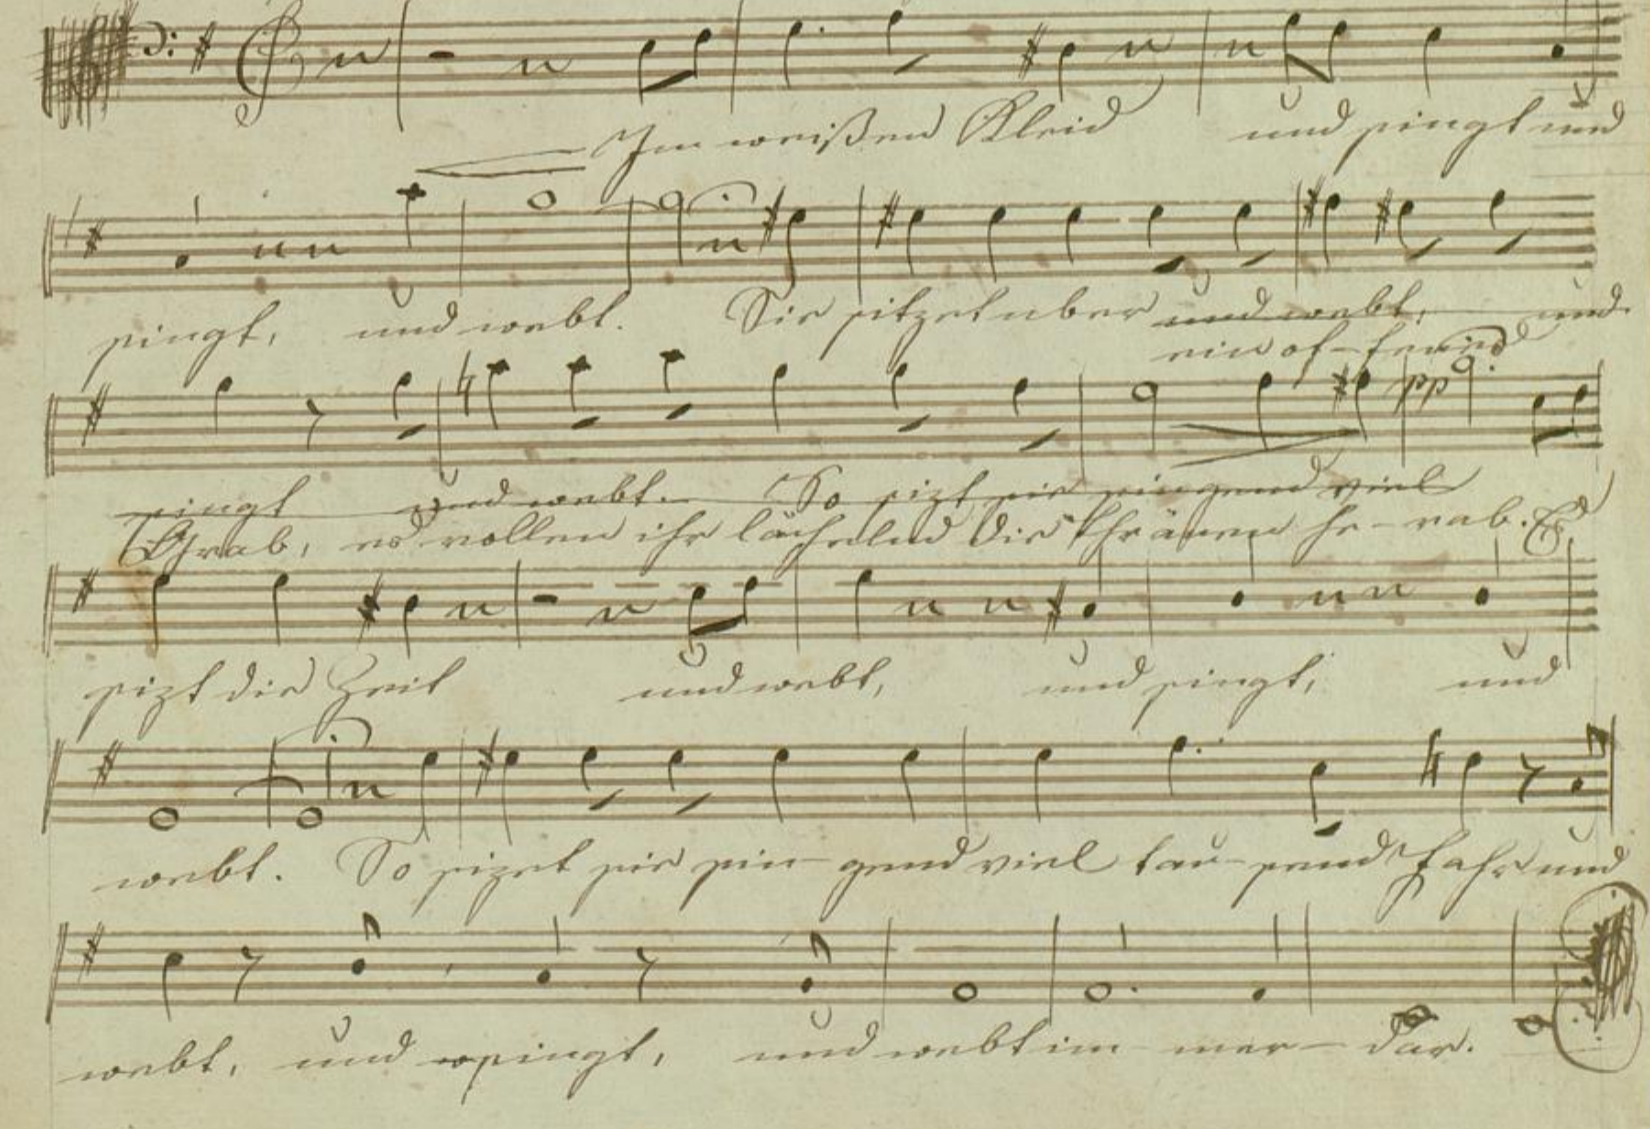 Im weißen Kleid und singt und
singt, und webt. Sie sitzet über und webt, und
ein of-fenes
pp
singt und webt. So sizt sie singend viel
Grab, es rollen ihr lächelnd die Thränen he-rab. Es
sizt die Zeit und webt, und singt, und
webt. So sizet sie sin-gend viel tau-send Jahr und
webt, und singt, und webt im-mer-dar.